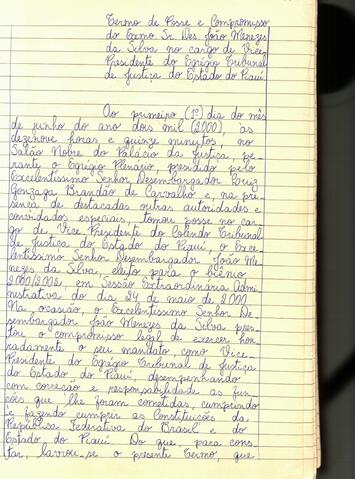 Termo de Posse e Compromisso
do Exmo Sr. Des. João Menezes
da Silva no cargo de Vice-
Presidente do Egrégio Tribunal
de Justiça do Estado do Piauí
Ao primeiro (1º) dia do mês
de junho do ano dois mil (2000), às
dezenove horas e quinze minutos, no
Salão Nobre do Palácio da Justiça, pe-
rante o Egrégio Plenário, presidido pelo
Excelentíssimo Senhor Desembargador Luiz
Gonzaga Brandão de Carvalho e, na pre-
sença de destacadas outras autoridades e
convidados especiais, tomou posse no car-
go de Vice-Presidente do Colendo Tribunal
de Justiça do Estado do Piauí, o Exce-
lentíssimo Senhor Desembargador João Me-
nezes da Silva, eleito para o biênio
2000/2002, em Sessão Extraordinária Admi-
nistrativa do dia 24 de maio de 2000.
Na ocasião, o Excelentíssimo Senhor De-
sembargador João Menezes da Silva pres-
tou o compromisso legal de exercer hon-
radamente o seu mandato, como Vice-
Presidente do Egrégio Tribunal de Justiça
do Estado do Piauí, desempenhando
com correção e responsabilidade as fun-
ções que lhe foram cometidas, cumprindo
e fazendo cumprir as Constituições da
República Federativa do Brasil e do
Estado do Piauí. Do que, para cons-
tar, lavrou-se o presente termo, que